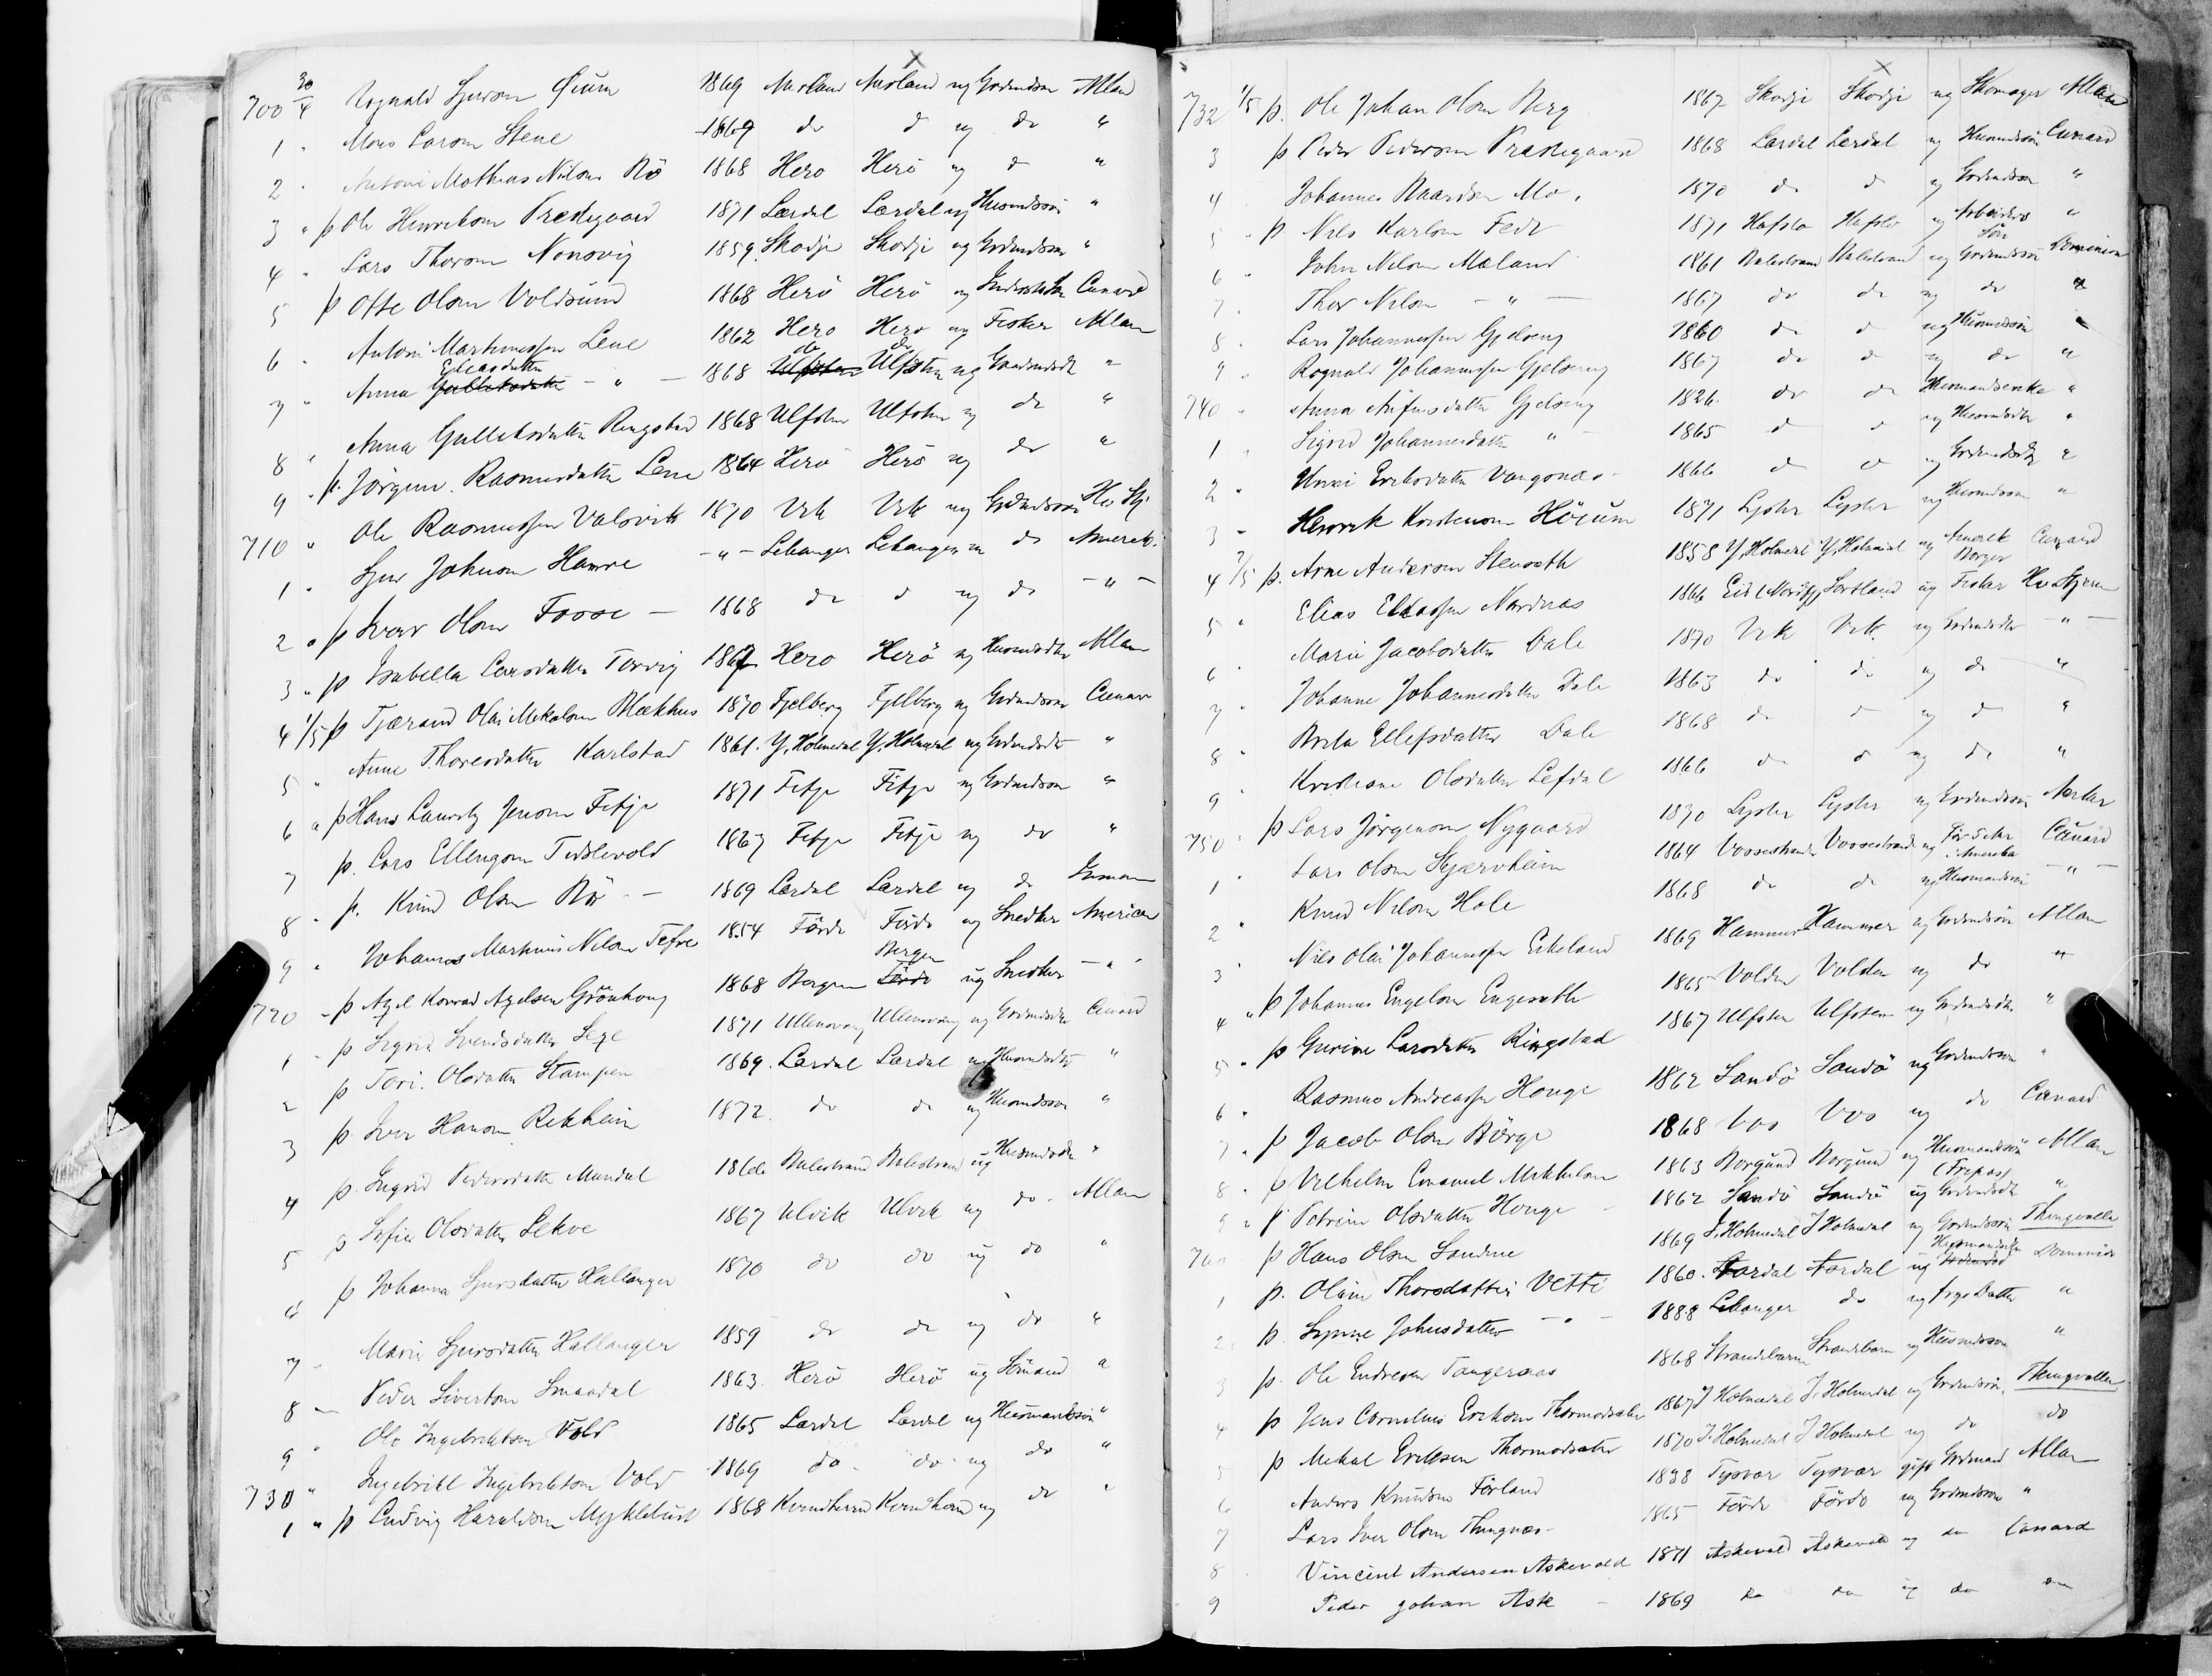 700 30/4 Rognald Sjurson Öium 1869 Aurland Aurland ug Grdmdsøn Allan
1 " Mons Larsen Stene 1869 do d ug do "
2 " Antoni Mathias Nilsen Rö 1868 Herö Herö ug d "
3 " þ Ole Henriksen Prestegaard 1871 Lærdal Lærdal ug Husmdssön "
4 " Lars Thorsen Nonsvig 1859 Skodje Skodje ug Grdmdsson "
5 þ Ofte Olsen Voldsund 1868 Herö Herö ug Cunard
6 " Antoni Martinussen Lene 1862 Herö Herö ug Fisker Allan
7 " Anna Eliasdatter - " - 1868 do do ug "
8 " Anna Gullaksdatter Ringstad 1868 Ulfsten Ulfsten ug do "
9 " þ. Jörgine Rasmusdatter Lene 1864 Herö Herö ug do "
710 " Ole Rasmussen Valsvik 1870 Vik Vik ug Grdmdssøn
1 " Sjur Johnson Hamre - " - Lekanger Lekanger ug do Amerik.
2 " þ Iver Olsen Fosse - 1868 do d ug do - " -
3 " þ Isabella Larsdatter Torvig 1867 Herö Herö ug Husmdsdtr Allan
4 1/5 þ Tjærand Olai Mikalsen Blækhus 1870 Fjelberg Fjelberg ug Grdmdssøn Cunar
5 " Anne Thoresdatter Karlstad 1861 Y. Holmedal Y. Holmedal ug Grdmdsdtr "
6 " þ Hans Lauritz Jenson Fitje 1871 Fitje Fitje ug Grdmdsson "
7 þ. Lars Ellingson Tislevold 1867 Fitje Fitje ug do "
8 " þ. Knud Olsen Bö - 1869 Lærdal Lærdal ug do Inman
9 " Johannes Martinus Nilsen Tefre 1854 Förde Förde ug Snedker American
720 " þ Axel Konrad Axelsen Grönhoug 1868 Bergen Bergen ug Snedker - " -
1 " þ Sigrid Svendsdatter Sexe 1871 Ullensvang Ullensvang ug Grdmdsdtr Cunard
2 þ Tori Olsdatter Stampen 1869 Lærdal Lærdal ug Husmdsdtr "
3 þ. Iver Hanson Rikheim 1872 do do ug Husmdsson "
4 þ. Ingrid Pedersdatter Mundal 1866 Balestrand Balestrand ug Husmdsdtr "
5 þ Sofie Olsdatter Lekve 1867 Ulvik Ulvik ug do Allan
6 þ Johanna Sjursdatter Hallanger 1870 do do ug do "
7 " Marie Sjursdatter Hallanger 1859 do do ug do "
8 - Peder Sivertsen Smaadal 1863 Herö Herö ug Sömand "
9 " Ole Ingebriktsen Vold 1865 Lærdal Lærdal ug Husmandssön "
730 " Ingebrikt Ingebriktsen Vold 1869 do do ug do "
1 " þ Ludvig Haraldson Myklebust 1868 Kvindherred Kvindherred ug do "
732 1/5 þ. Ole Johan Olsen Berg 1867 Skodje Skodje ug Skomager Allan
3 þ Peder Pederson Prestegaard 1868 Lærdal Lærdal ug Husmdssön Cunard
4 Johannes Baardsen Mo. 1870 do d ug Grdmdsson "
5 " þ Nils Karlsen Fedt 1871 Hafslo Hafslo ug Arbeiders Sön "
6 " John Nilsen Mæland 1861 Balestrand Balestrand ug Grdmdssön Dominion
7 " Thor Nilsen - " - 1867 do do ug do "
8 " Lars Johannessen Gjelseng 1860 do d ug Husmdssön "
9 " Rognald Johannessen Gjelseng 1867 do d ug do "
740 " Anna Arfinsdatter Gjelseng 1826 do do Husmandsenke "
1 " Sigrid Johannesdatter " - 1865 d d ug Husmdsdtr "
2 " Unni Eriksdatter Vangsnæs - 1866 d d ug Grdmdsdtr "
3 - Henrik Kristenson Höium 1871 Lyster Lyster ug Husmdssøn "
4 2/5 þ. Arne Anderson Stensæth 1858 Y. Holmedal Y. Holmedal ug Amerik Borger Cunard
5 " Elias Eliassen Nordnæs 1866 Eid Sortland ug Fisker
6 " Marie Jacobsdatter Dale 1870 Vik Vik ug Grdmdsdtr - " -
7 " Johanne Johannesdatter Dale 1863 do do ug do "
8 " Brita Ellefsdatter Dale 1868 do d ug d "
9 " Kristiane Olsdatter Lefdal 1866 do d ug do "
750 " þ Lars Jörgenson Nygaard 1870 Lyster Lyster ug Grdmdssön Anker
1 " Lars Olsen Skjærvheim 1864 Vossestranden Vossestranden ug i Amerika Cunard
2 " Knud Nilsen Hole 1868 do do ug Husmandssön - " -
3 " Nils Olai Johannessen Eikeland 1869 Hammer Hammer ug Grdmdssön Allan
4 " þ Johannes Engelsen Engesæth 1865 Volden Volden ug do "
5 " þ Gurine Larsdatter Ringstad 1867 Ulfsten Ulfsten ug Grdmdsdtr "
6 " Rasmus Andreassen Houge 1862 Sandö Sandö ug Grdmdssøn "
7 " þ Jacob Olsen Börge 1868 Vos Vos ug do Cunard
8 " þ Vilhelm Emanuel Mikkelsen 1863 Borgund Borgund ug Husmandssön (Fripas) Allan
9 " þ Petrine Olsdatter Houge - 1862 Sandö Sandö ug Grdmdsdtr "
760 þ Hans Olsen Sandene 1869 I. Holmedal I. Holmedal ug Grdmdssön Thingvalla
1 þ. Oline Thorsdatter Vetti 1860. Aardal Aardal ug Husmandsdtr Dominio
2 þ. Synne Johnsdatter - " - 1888 Lekanger do ug Datter "
3 þ. Ole Endresen Tangeraas 1868 Strandebarm Strandebarm ug Husmdsson "
4 þ Jens Cornelius Eriksen Thormodsæter 1867 I. Holmedal I. Holmedal ug Grdmdssön. Thingvalla
5 þ Mikal Eriksen Thormodsæter 1870 I. Holmedal I Holmedal ug do do
6 Anders Knudsen Förland 1838 Tysvær Tysvær gift Grdmand Allan
7 Lars Iver Olsen Thingnæs - 1865 Förde Förde ug Grdmdsson "
8 " Vincent Andersen Askevold 1871 Askevold Askevold ug do Cunard
9 Peder Johan Ask - 1869 do do ug do do